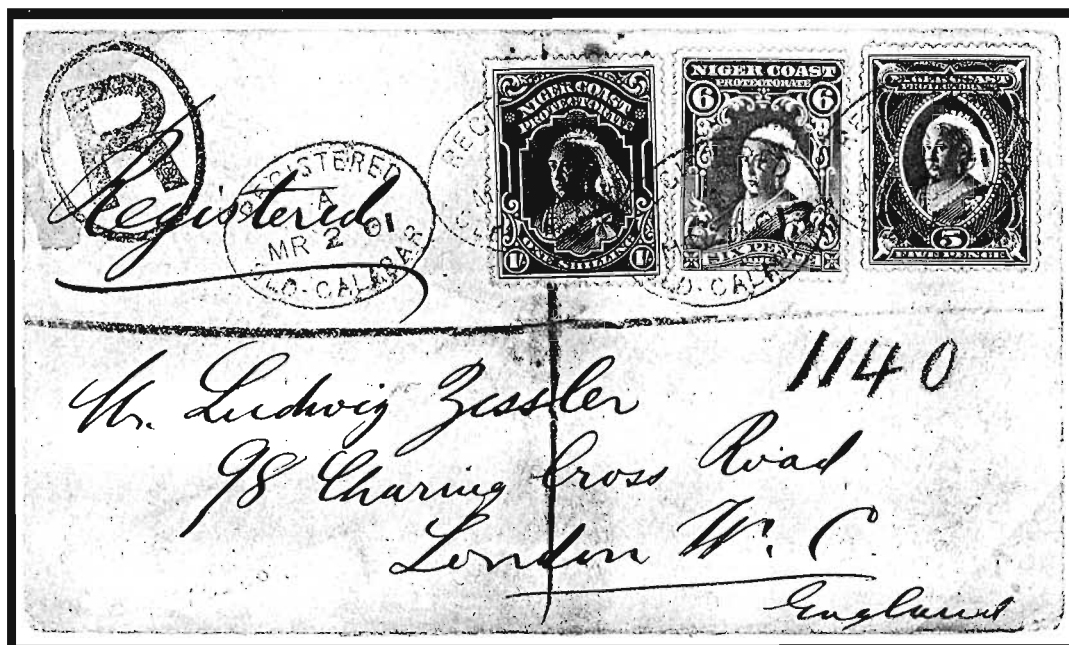 R
Registered
REGISTERED
A
MR 2 01
OLD·CALABAR
NIGER COAST
PROTECTORATE
ONE SHILLING
1/- 1/-
NIGER COAST
PROTECTORATE
6 6
SIX PENCE
NIGER COAST
PROTECTORATE
5
FIVE PENCE
REG
LD·CALA
1140
Mr. Ludwig Zessler
98 Charing Cross Road
London W. C.
England